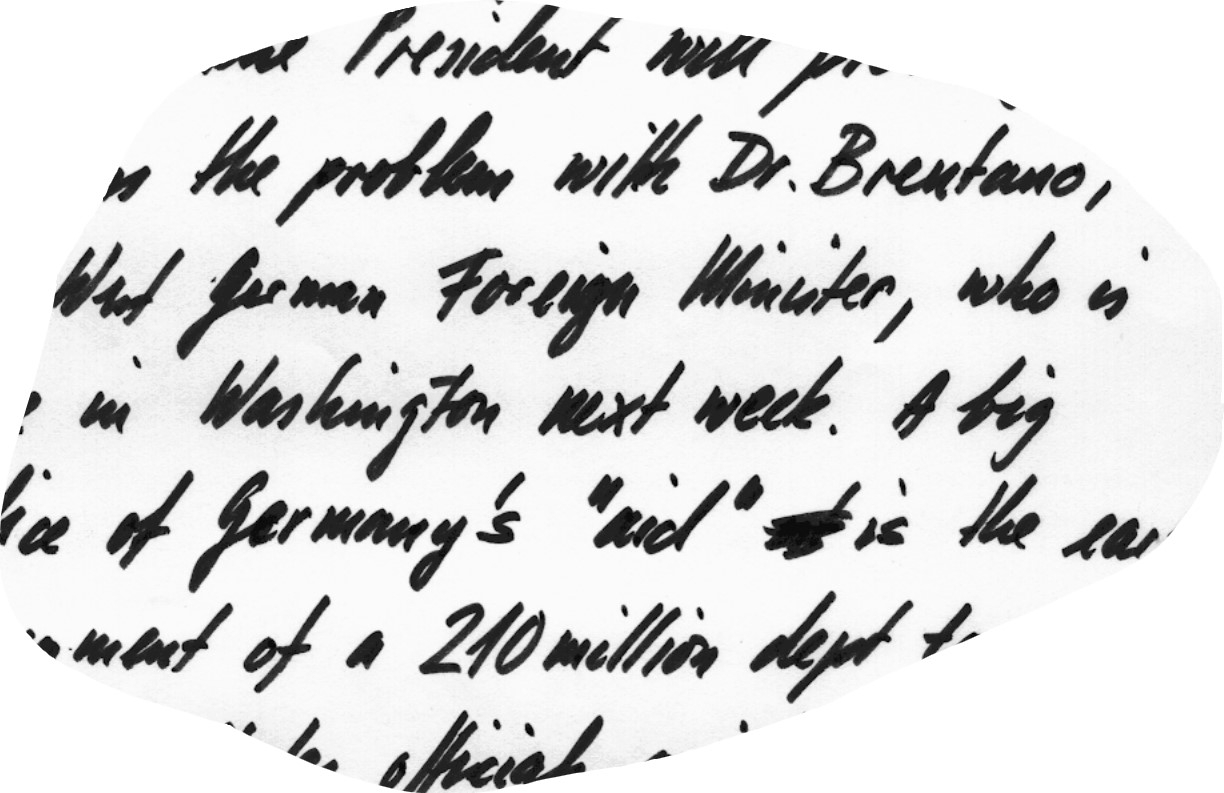 the President will
the problem with Dr. Brentano,
West German Foreign Minister, who is
in Washington next week. A big
of Germany's "aid" is the
of a 210 million dept
official